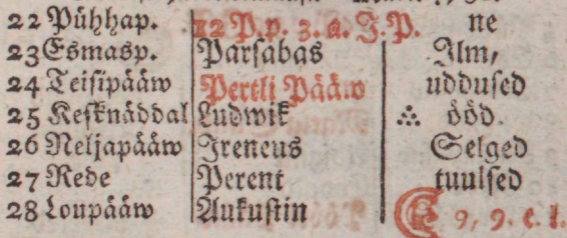 22 Pühhap. 12 P.p. 3. a. J. P. ne
23 Esmasp. Parsabas Ilm,
24 Teisipääw Pertli Pääw uddused
25 Kesknäddal Ludwik ஃ ööd.
26 Neljapääw Ireneus Selged
27 Rede Perent tuulsed
28 Loupääw Aukustin 9, 9. e. l.